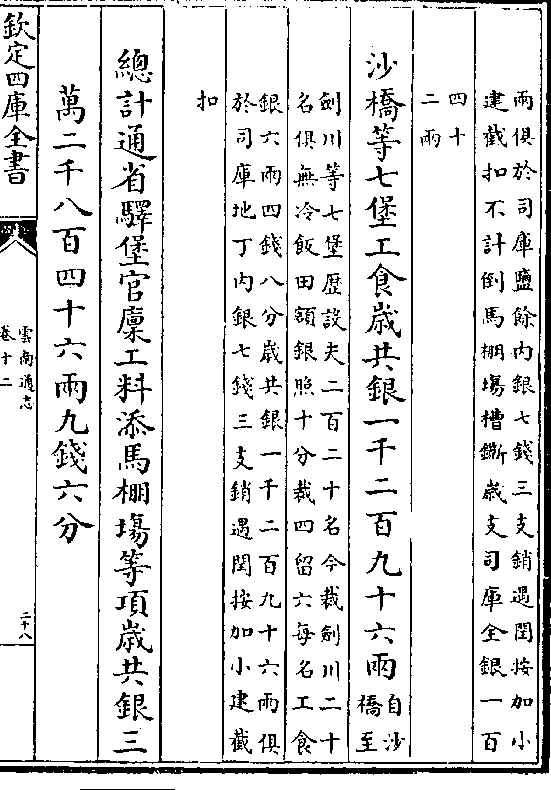 兩俱於司庫鹽餘內銀七錢三支銷遇閏按加小
建截扣不計倒馬棚塲槽鍘歲支司庫全銀一百
四十
二兩
沙橋等七堡工食歲共銀一千二百九十六兩
自沙
橋至
劍川等七堡歷設夫二百二十名今裁劍川二十
名俱無冷飯田額銀照十分裁四留六每名工食
銀六兩四錢八分歲共銀一千二百九十六兩俱
於司庫地丁內銀七錢三支銷遇閏按加小建截
扣
總計通省驛堡官廪工料添馬棚塲等項歲共銀三
萬二千八百四十六兩九錢六分
欽定四庫全書
雲南通志
卷十二
二十八